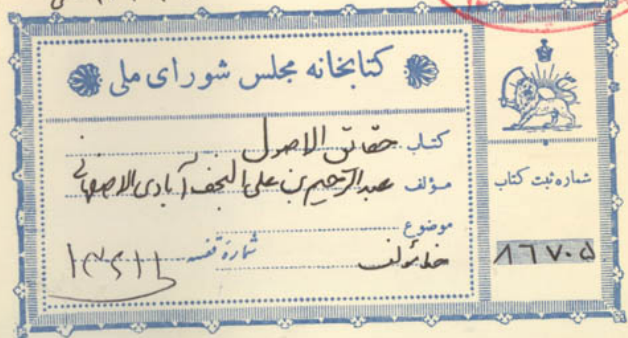 کتابخانه مجلس شورای ملی
کتاب حقائق الاصول
مؤلف عبدالرحیم بن علی النجف آبادی الاصفهانی
موضوع
خط مؤلف
شماره قفسه
شماره ثبت کتاب
۸۶۷۰۵